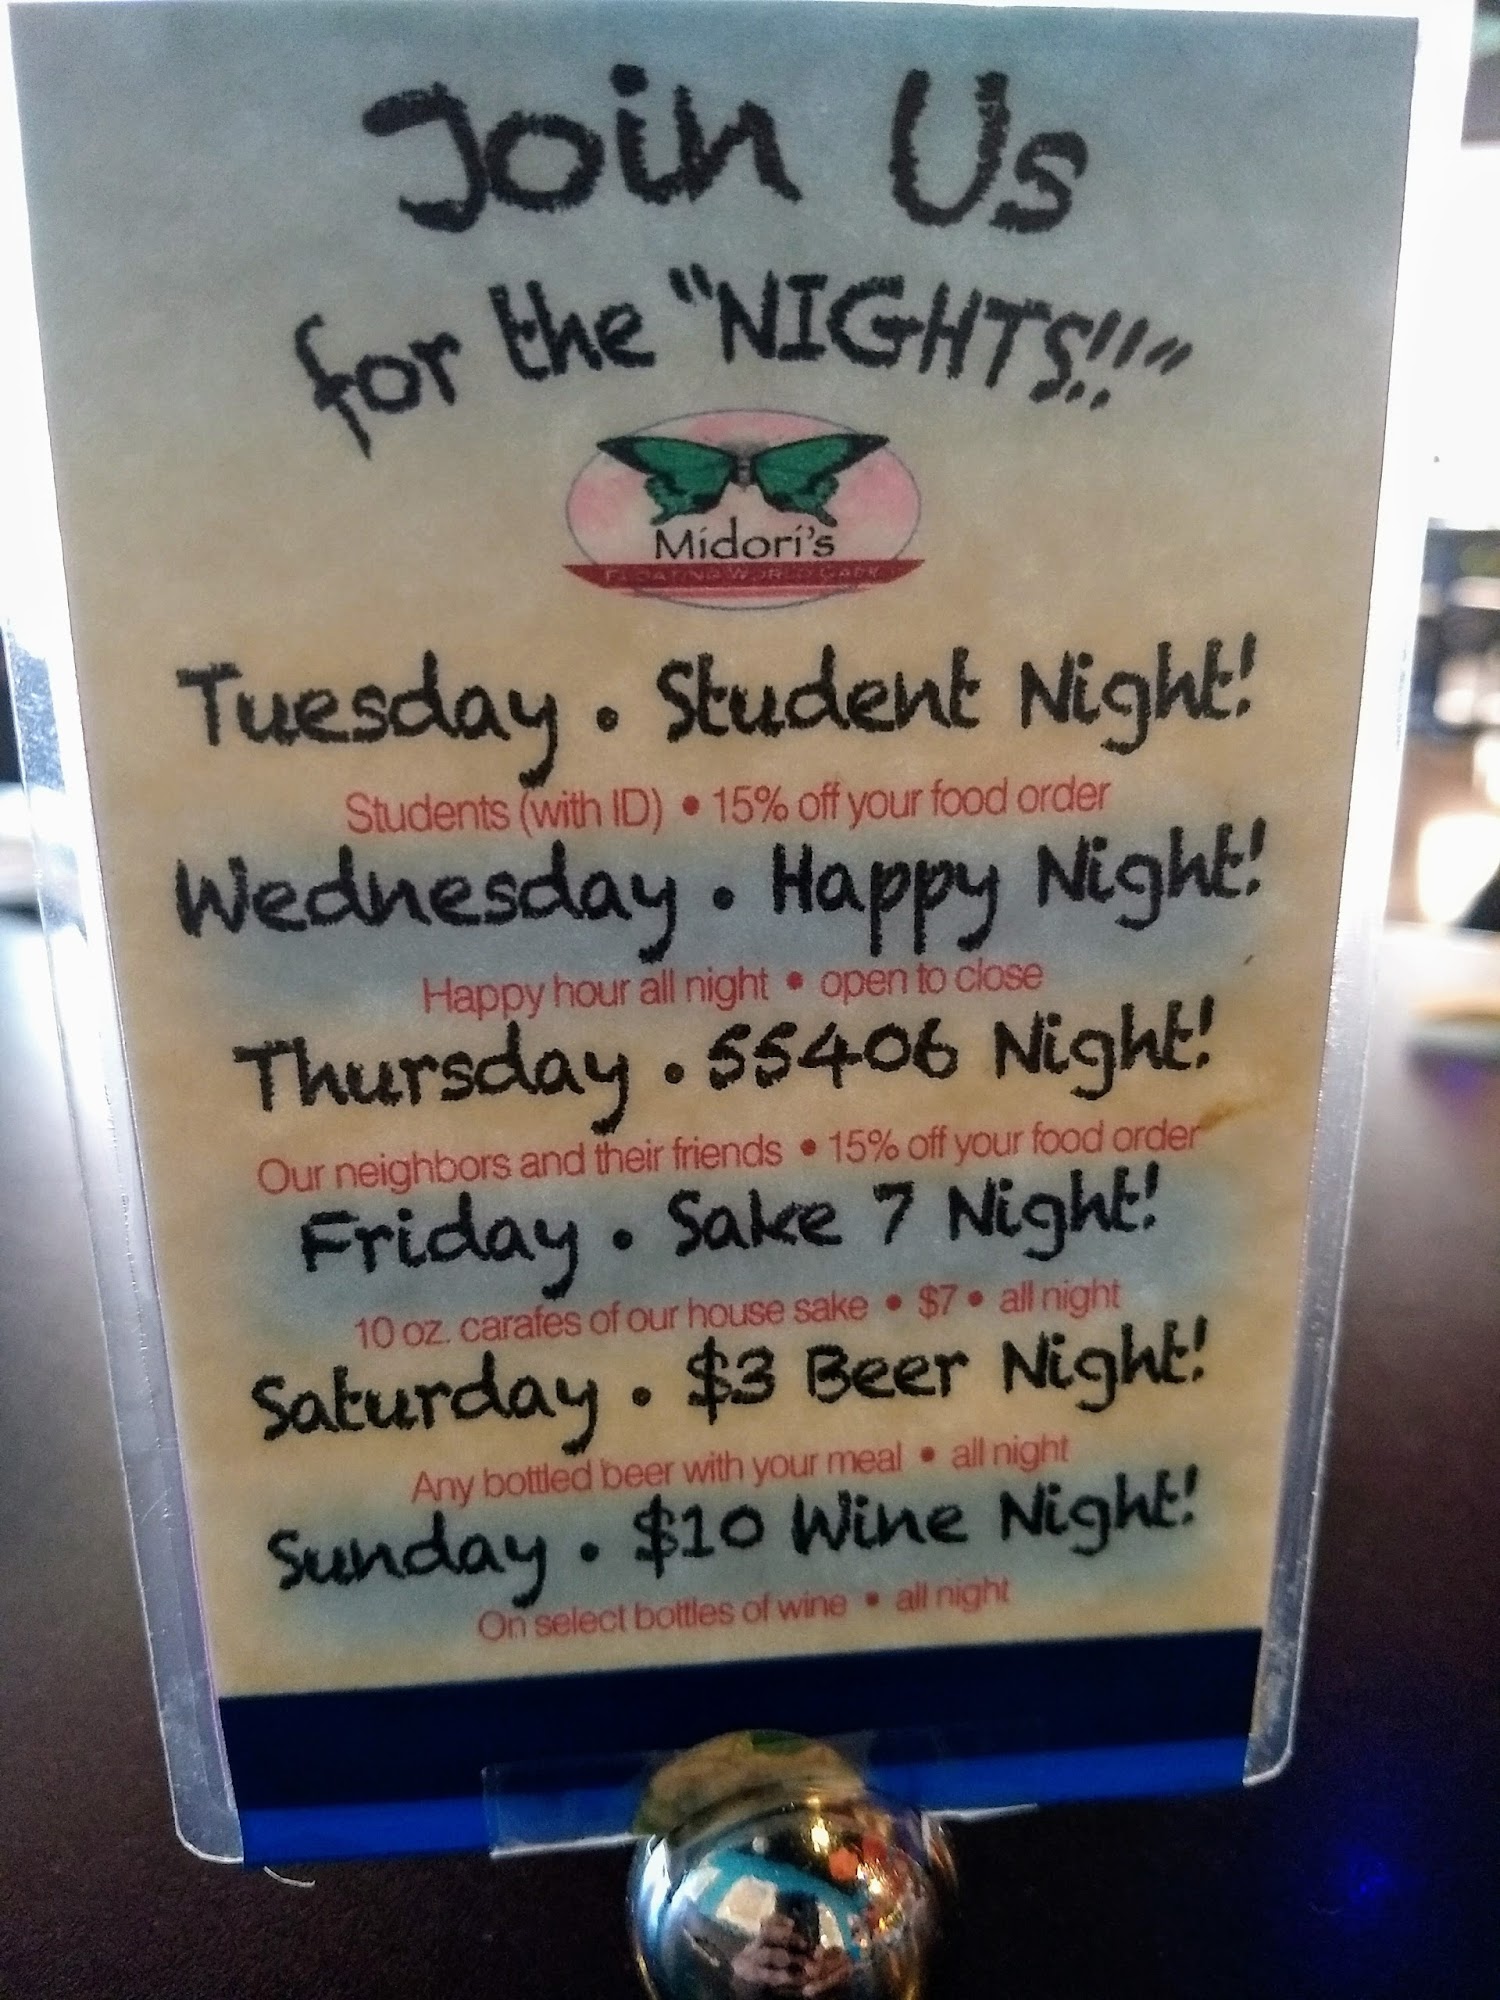 Join Us
for the "NIGHTS!!"
Midori's
FLOATING WORLD CAFE
Tuesday • Student Night!
Students (with ID) • 15% off your food order
Wednesday • Happy Night!
Happy hour all night • open to close
Thursday • 55406 Night!
Our neighbors and their friends • 15% off your food order
Friday • Sake 7 Night!
10 oz. carafes of our house sake • $7 • all night
Saturday • $3 Beer Night!
Any bottled beer with your meal • all night
Sunday • $10 Wine Night!
On select bottles of wine • all night